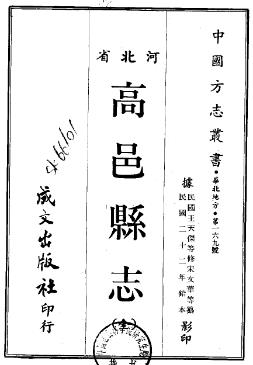 中國方志叢書・華北地方・第一六九號
據民國王天傑等修宋文華等纂
民國二十二年鉛本影印
河北省
高邑縣志
(全)
成文出版社印行